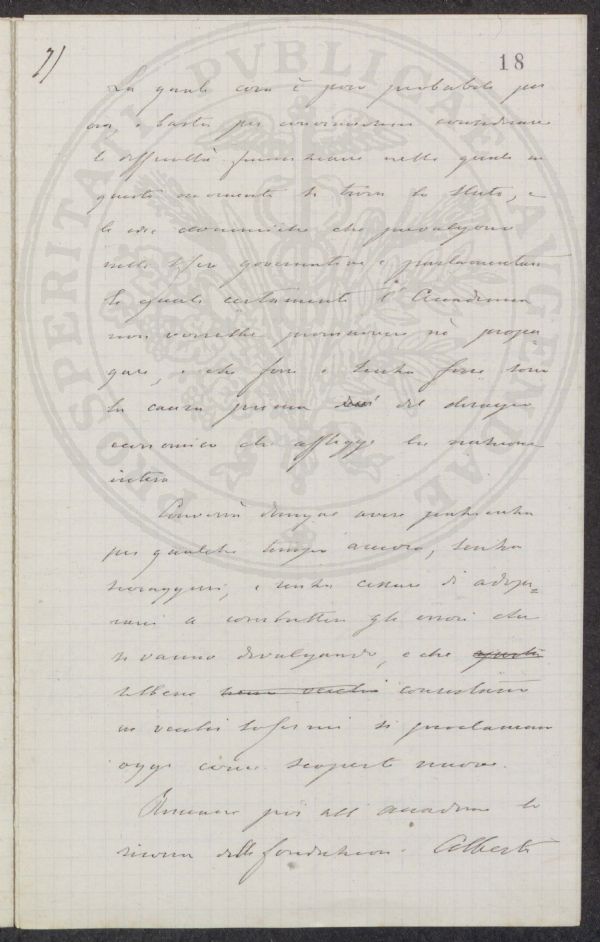 21
18
PROSPERITATI PVBLICAE AVGENDAE
La quale cosa è poco probabile per
ora, e basta per convincersene considerare
le difficoltà finanziarie nelle quali in
questo momento si trova lo Stato, e
le idee economiche che prevalgono
nelle sfere governative e parlamentari
le quali certamente l'Accademia
non vorrebbe promuovere nè propa
gare, e che forse e senza forse sono
la causa prima del disagio
economico che affligge la nazione
intera
Converrà dunque avere pazienza
per qualche tempo ancora, senza
scoraggirsi, e senza cessare di adope=
rarsi a combattere gli errori che
si vanno divulgando, e che questi
sebbene consistano
in vecchi sofismi si proclamano
oggi come scoperte nuove.
Rimane poi all'accademia la
risorsa della fondazione Alberti